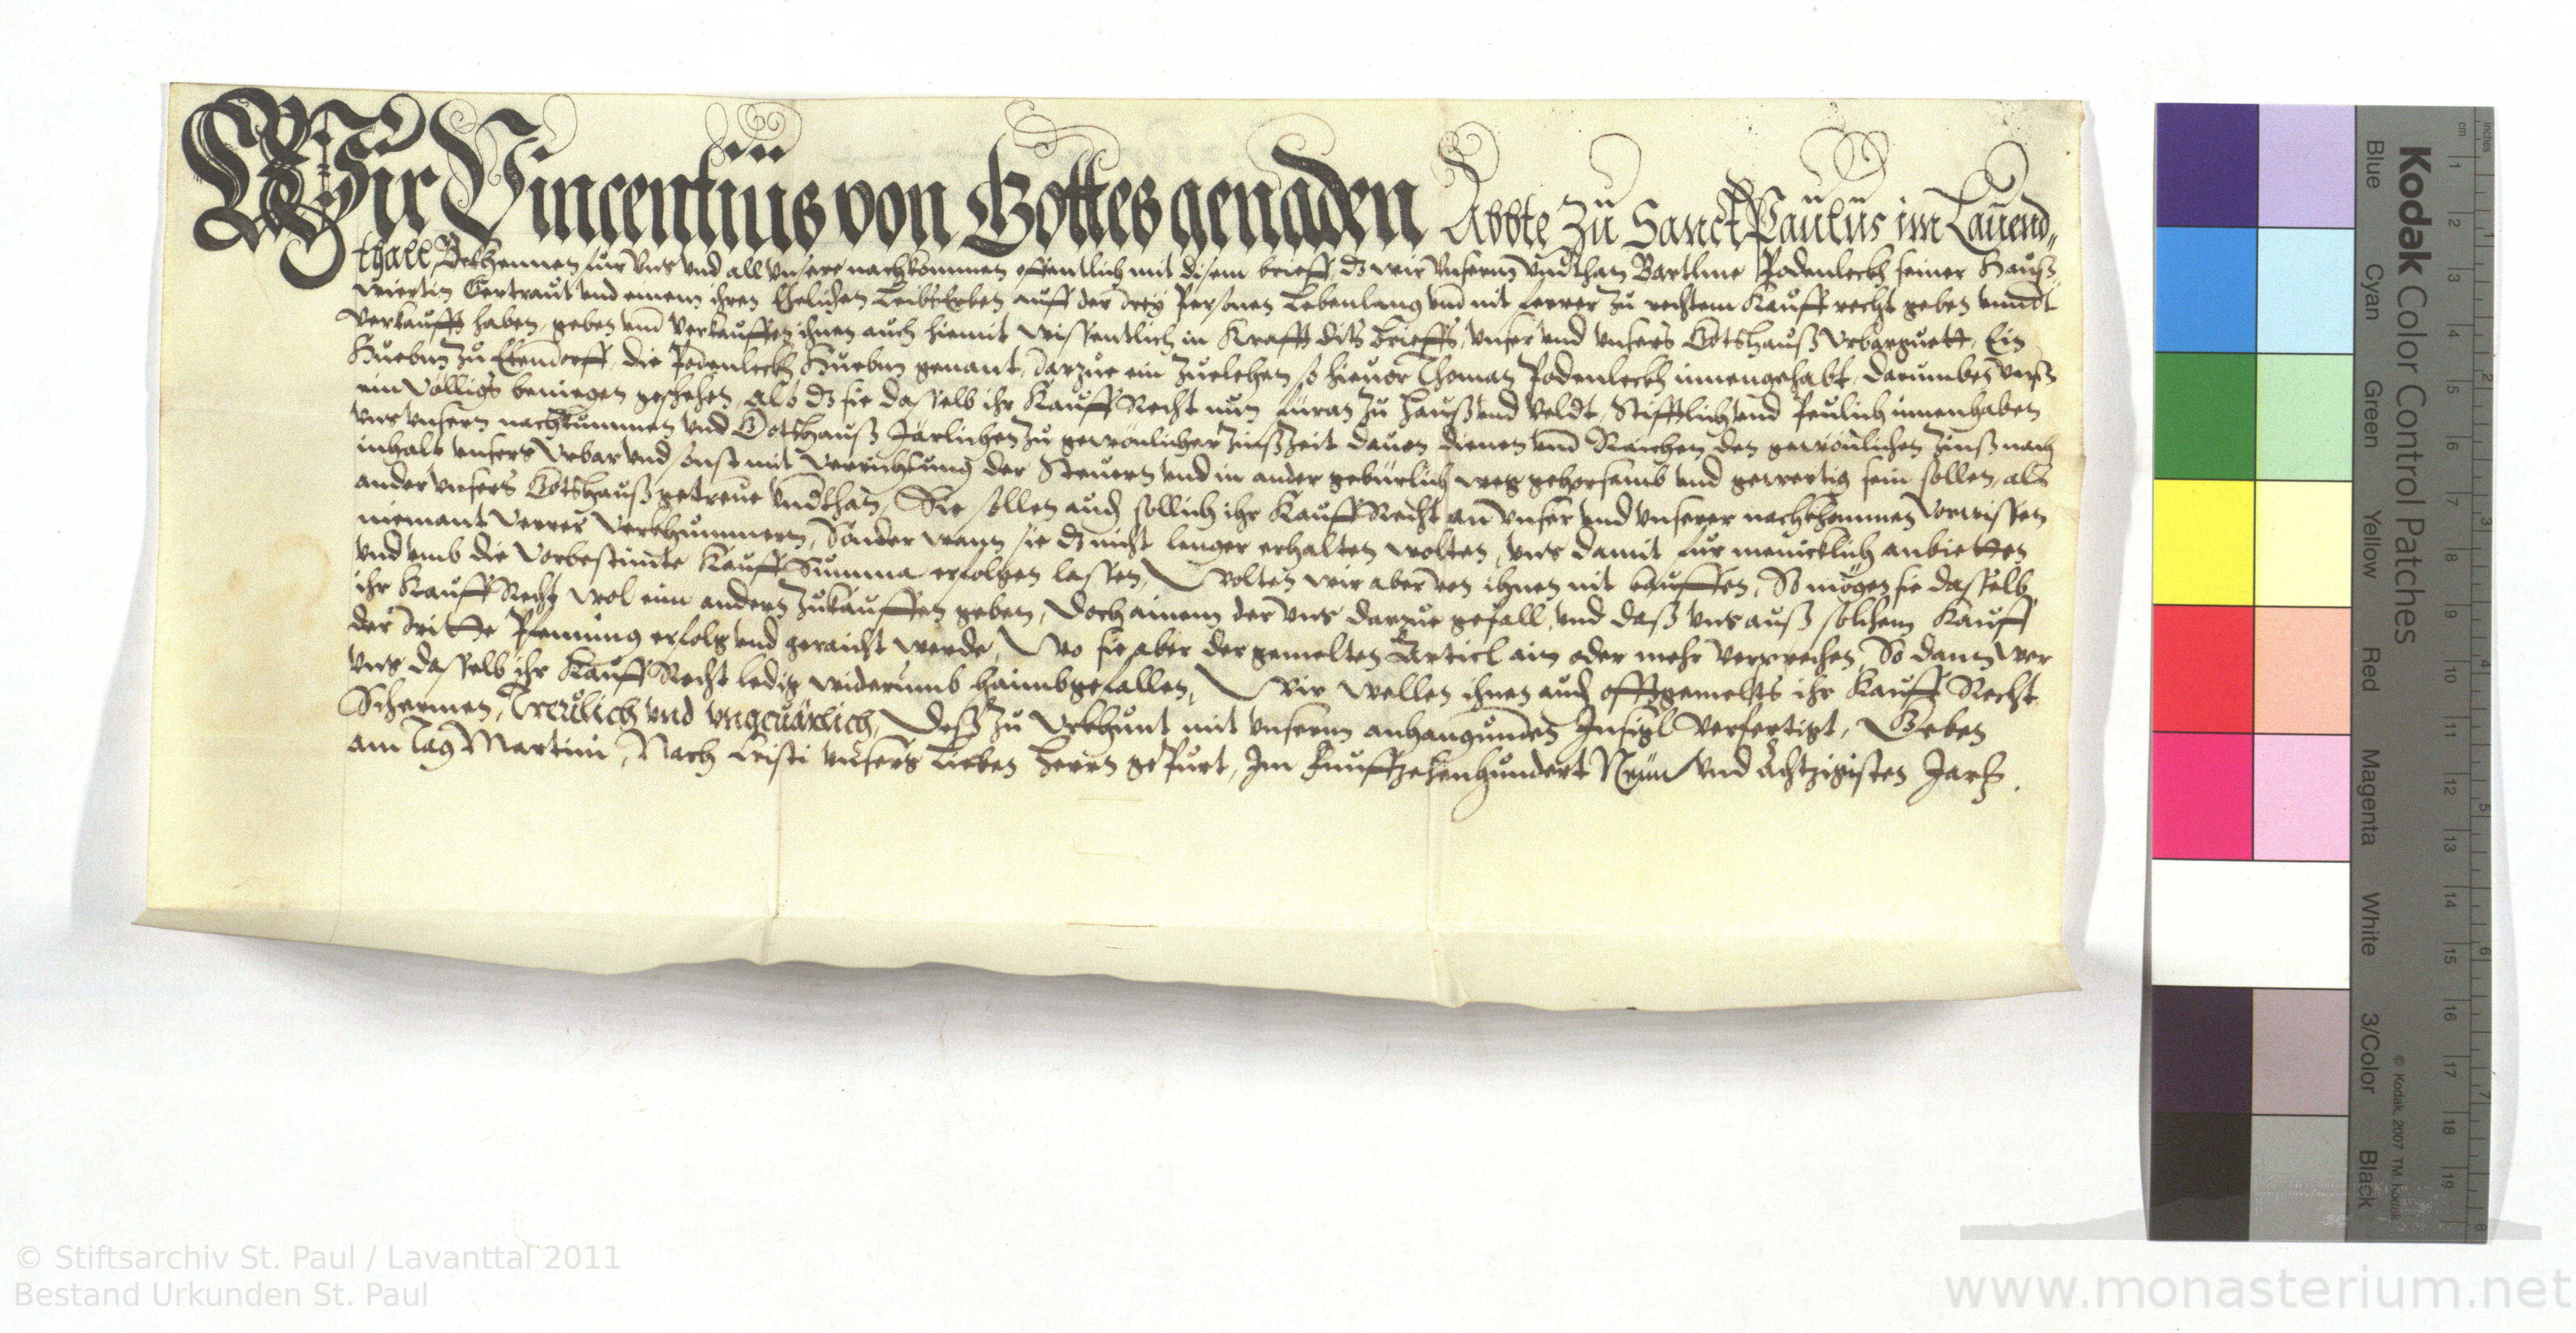 Wir Vincentius von Gottes genaden Abbte zu Sanct Paulus im Lauend„
thall, Bekhennen für vns vnd all vnsere nachkommen offentlich mit disem brieff, dz wir vnserm vnd̄than Bartlme Podenleckh seiner Hauß„
wiertin Gertraut vnd einem ihren Ehelichen Leibs Erben auff der drey Personen Lebenlang vnd nit ferrer zu rechtem Kauffrecht geben vnnd
verkaufft haben, geben vnd verkauffen ihnen auch hiemit wissentlich in Krafft dits brieffs, vnser vnd vnsers Gotshauß vrbarguett, Ein
Huebm zu Ettendorff, die Podenleckh Huebm genant, darzue ein Zuelehen so hieuor Thoman Podenleckh innengehabt, darumben vnß
ein völligs beniegen geschehen, Als dz sie dasselb ihr Kauff Recht nun füran zu Hauß vnd Veldt, Stifftlich vnd Peulich innenhaben
vns vnsern nachkummen vnd Gotshauß Järlichen zu gewönlicher Zinßzeit dauon dienen vnd Raichen den gewönlichen Zinß nach
inhalt vnsers Vrbar vnd sonst mit verrichtung der Steuern vnd in ander gebürlich weg gehorsamb vnd gewertig sein sollen, als
ander vnsers Gotshauß getreue vnd̄than, Sie sollen auch sollich ihr Kauff Recht an vnser vnd vnserer nachkhommen vorwissen
niemant verrer verkhummern, Sonder wann sie dz nicht lenger erhalten wolten, vns damit für menicklich anbietten
vnd vmb die vorbestimte Kauff Summa erfolgen lassen, Wolten wir aber von ihnen nit kauffen, So mögen sie dasselb
ihr Kauff Recht wol eim andern zukauffen geben, doch ainem der vns darzue gefall, vnd daß vns auß solchem Kauff
der dritte Pfenning erfolg vnd geraicht werde, Wo sie aber der gemelten Articl ain oder mehr verprechen, So dann wer
vns dasselb ihr Kauff Recht ledig widerumb haimbgefallen, Wir wellen ihnen auch offtgemelts ihr Kauff Recht
Schermen, Treulich vnd vngeuärlich, Deß zu vrkhunt mit vnserm anhangunden Insigl verfertigt, Geben
am Tag Martini, Nach Cristi vnsers Lieben Herrn gepurt, Im Funffzehenhundert Neun vnd Achtzigisten Jarh.
Kodak Color Control Patches
Blue Cyan Green Yellow Red Magenta White 3/Color Black
© Kodak, 2007 TM: Kodak
inches 1 2 3 4 5 6 7 8
cm 1 2 3 4 5 6 7 8 9 10 11 12 13 14 15 16 17 18 19
© Stiftsarchiv St. Paul / Lavanttal 2011
Bestand Urkunden St. Paul
www.monasterium.net